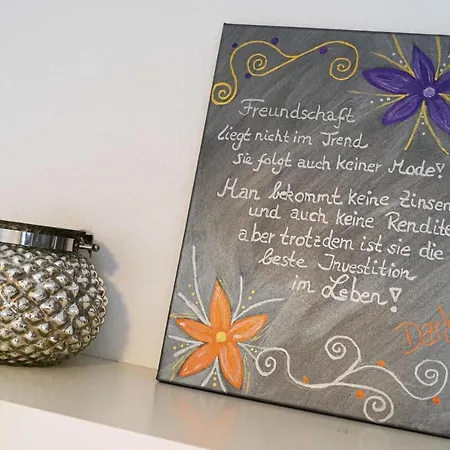 Freundschaft
liegt nicht im Trend
sie folgt auch keiner Mode!
Man bekommt keine Zinsen
und auch keine Rendite
aber trotzdem ist sie die
beste Investition
im Leben!